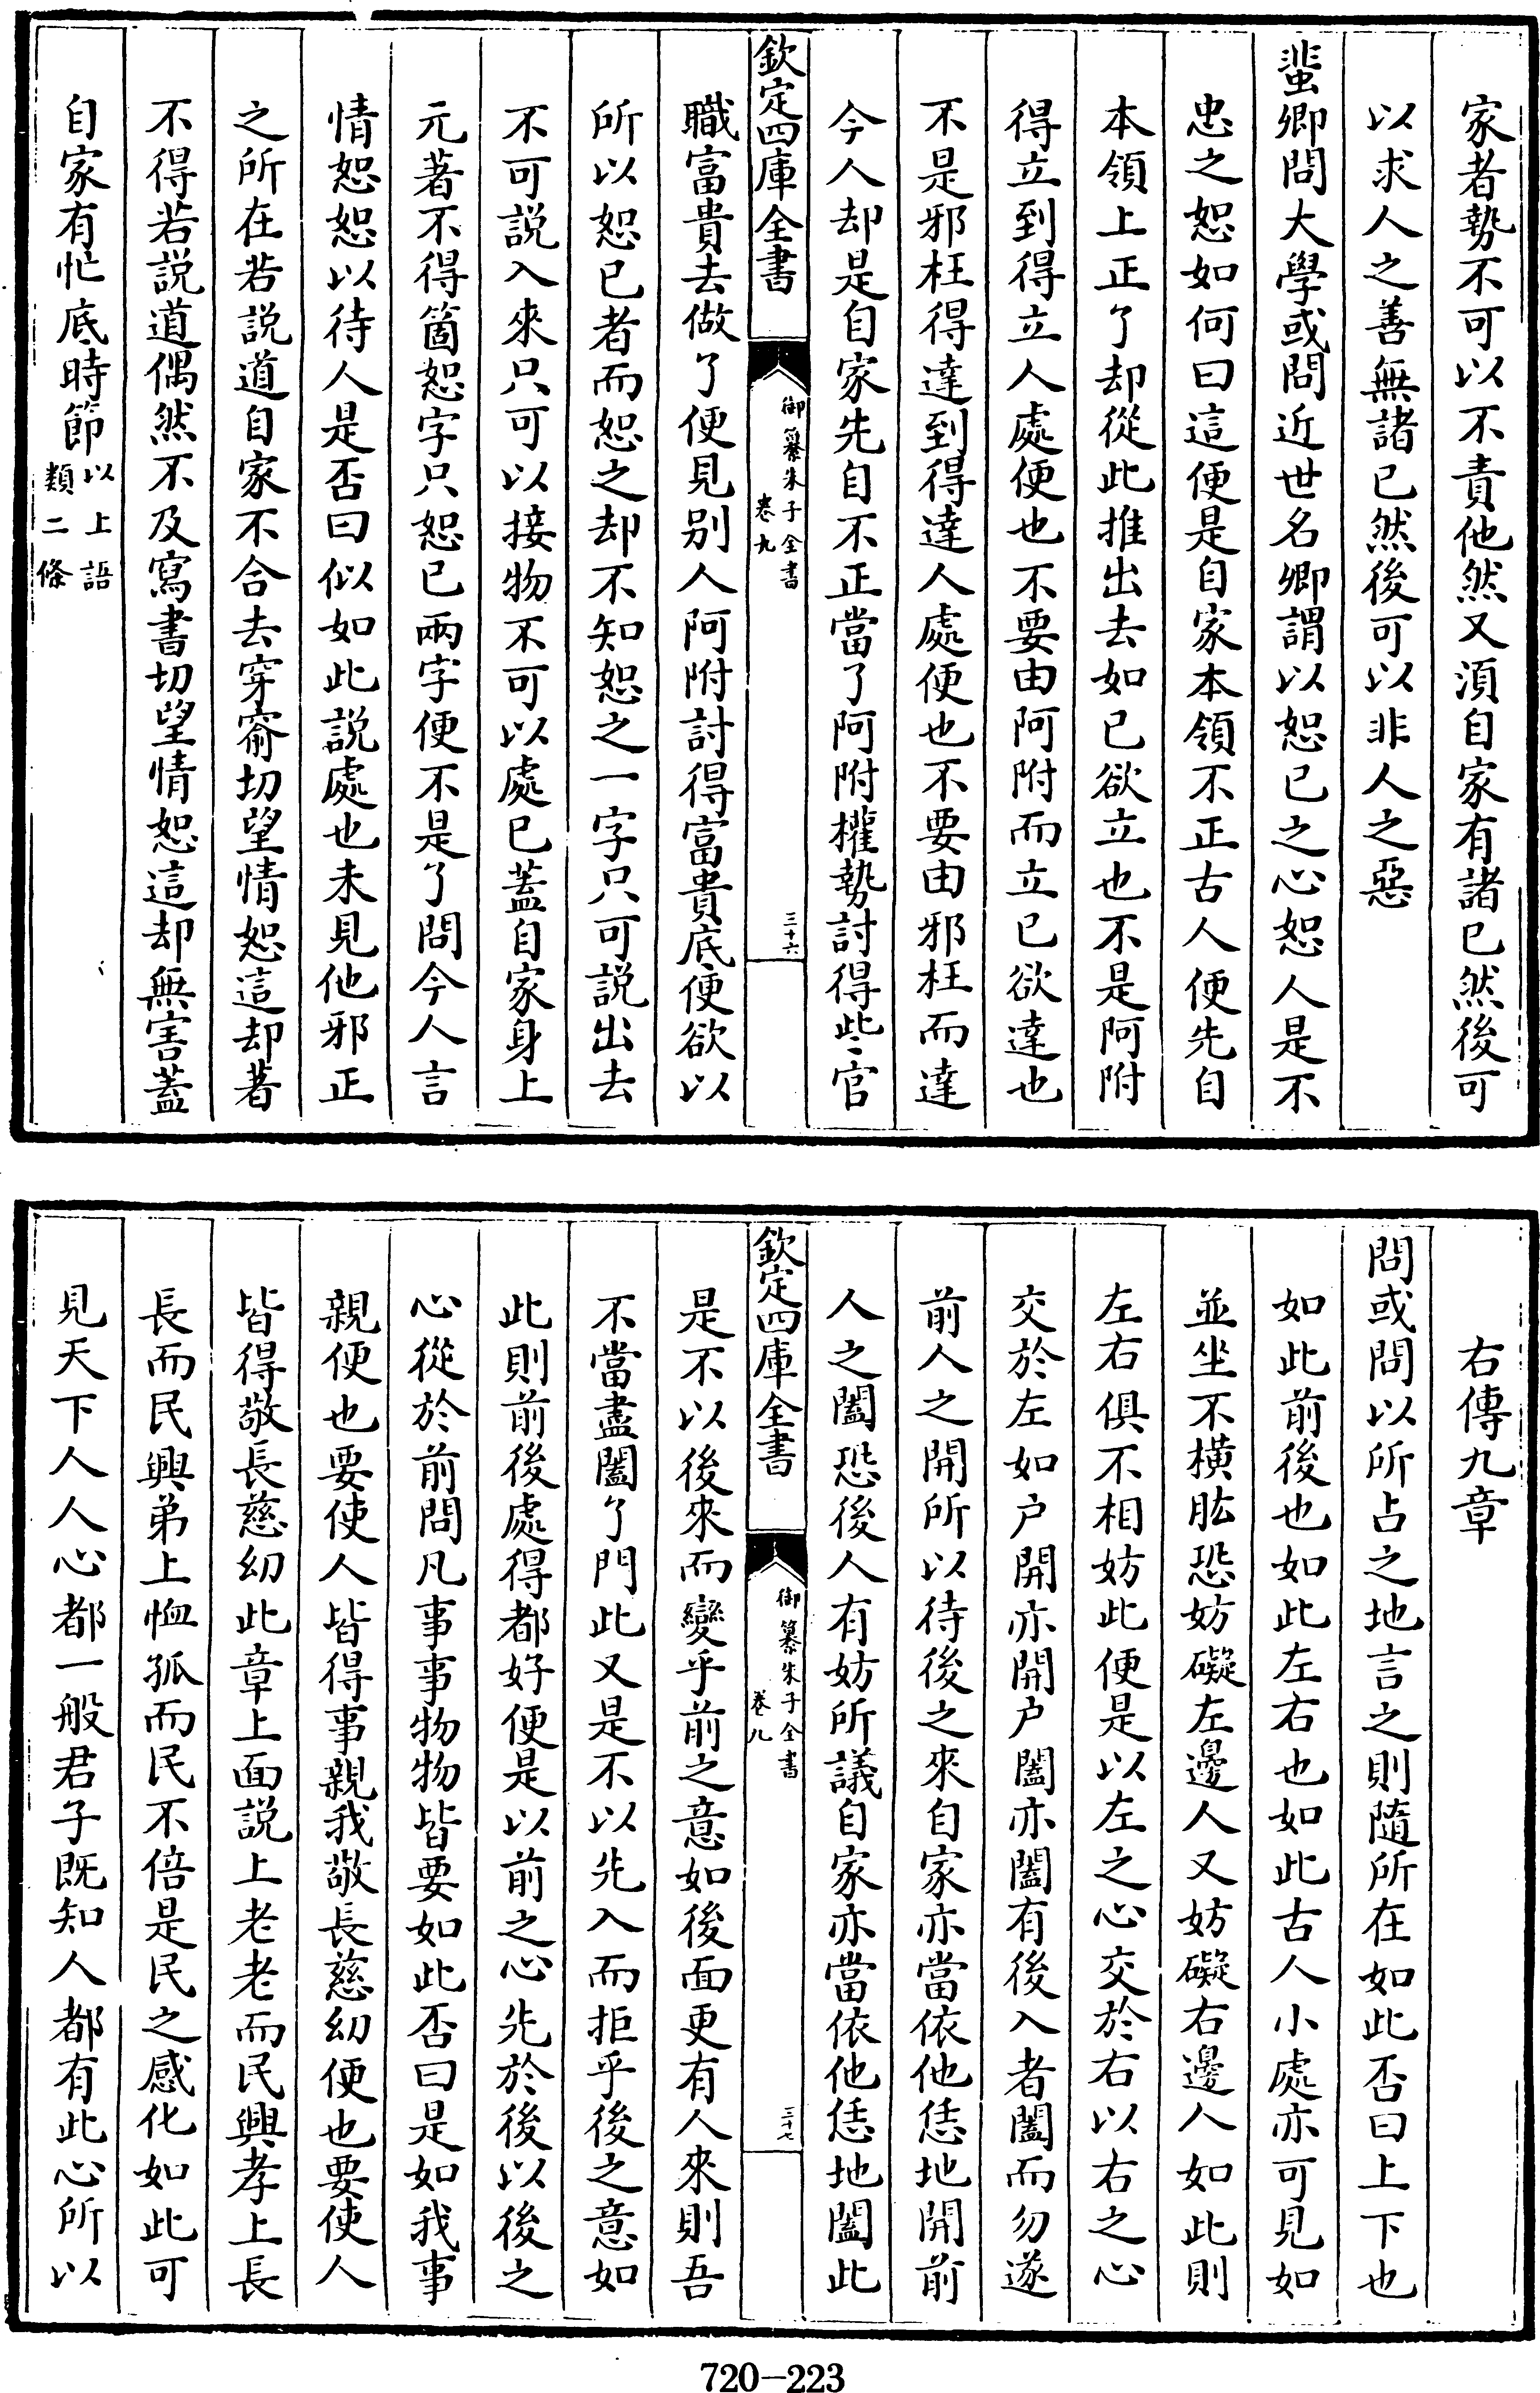 家者勢不可以不責他然又湏自家有諸已然後可
以求人之善無諸已然後可以非人之惡
蜚卿問大學或問近世名卿謂以恕已之心恕人是不
忠之恕如何曰這便是自家本領不正古人便先自
本領上正了却從此推出去如已欲立也不是阿附
得立到得立人處便也不要由阿附而立已欲達也
不是邪枉得達到得達人處便也不要由邪枉而達
今人却是自家先自不正當了阿附權勢討得些官
欽定四庫全書
御纂朱子全書
卷九
三十六
職富貴去做了便見別人阿附討得富貴底便欲以
所以恕已者而恕之却不知恕之一字只可説出去
不可説入來只可以接物不可以處已蓋自家身上
元著不得箇恕字只恕已兩字便不是了問今人言
情恕恕以待人是否曰似如此説處也未見他邪正
之所在若説道自家不合去穿窬切望情恕這却著
不得若説道偶然不及寫書切望情恕這却無害蓋
自家有忙底時節以上語
類二條
右傳九章
問或問以所占之地言之則隨所在如此否曰上下也
如此前後也如此左右也如此古人小處亦可見如
並坐不横肱恐妨礙左邊人又妨礙右邊人如此則
左右俱不相妨此便是以左之心交於右以右之心
交於左如户開亦開户闔亦闔有後入者闔而勿遂
前人之開所以待後之來自家亦當依他恁地開前
人之闔恐後人有妨所議自家亦當依他恁地闔此
欽定四庫全書
御纂朱子全書
卷八
三十七
是不以後來而變乎前之意如後面更有人來則吾
不當盡闔了門此又是不以先入而拒乎後之意如
此則前後處得都好便是以前之心先於後以後之
心從於前問凡事事物物皆要如此否曰是如我事
親便也要使人皆得事親我敬長慈幼便也要使人
皆得敬長慈幼此章上面説上老老而民興孝上長
長而民興弟上恤孤而民不倍是民之感化如此可
見天下人人心都一般君子既知人都有此心所以
720-223